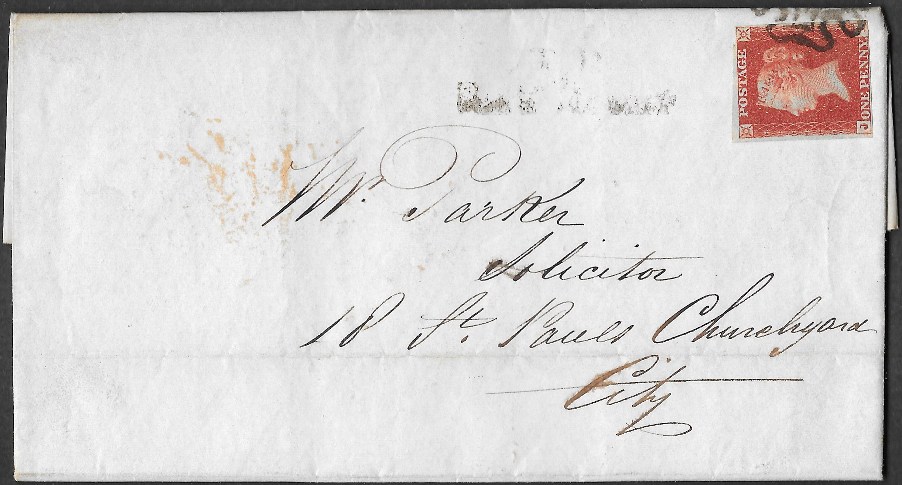 POSTAGE
ONE PENNY
J
Mr. Parker
Solicitor
18 St. Pauls Churchyard
City